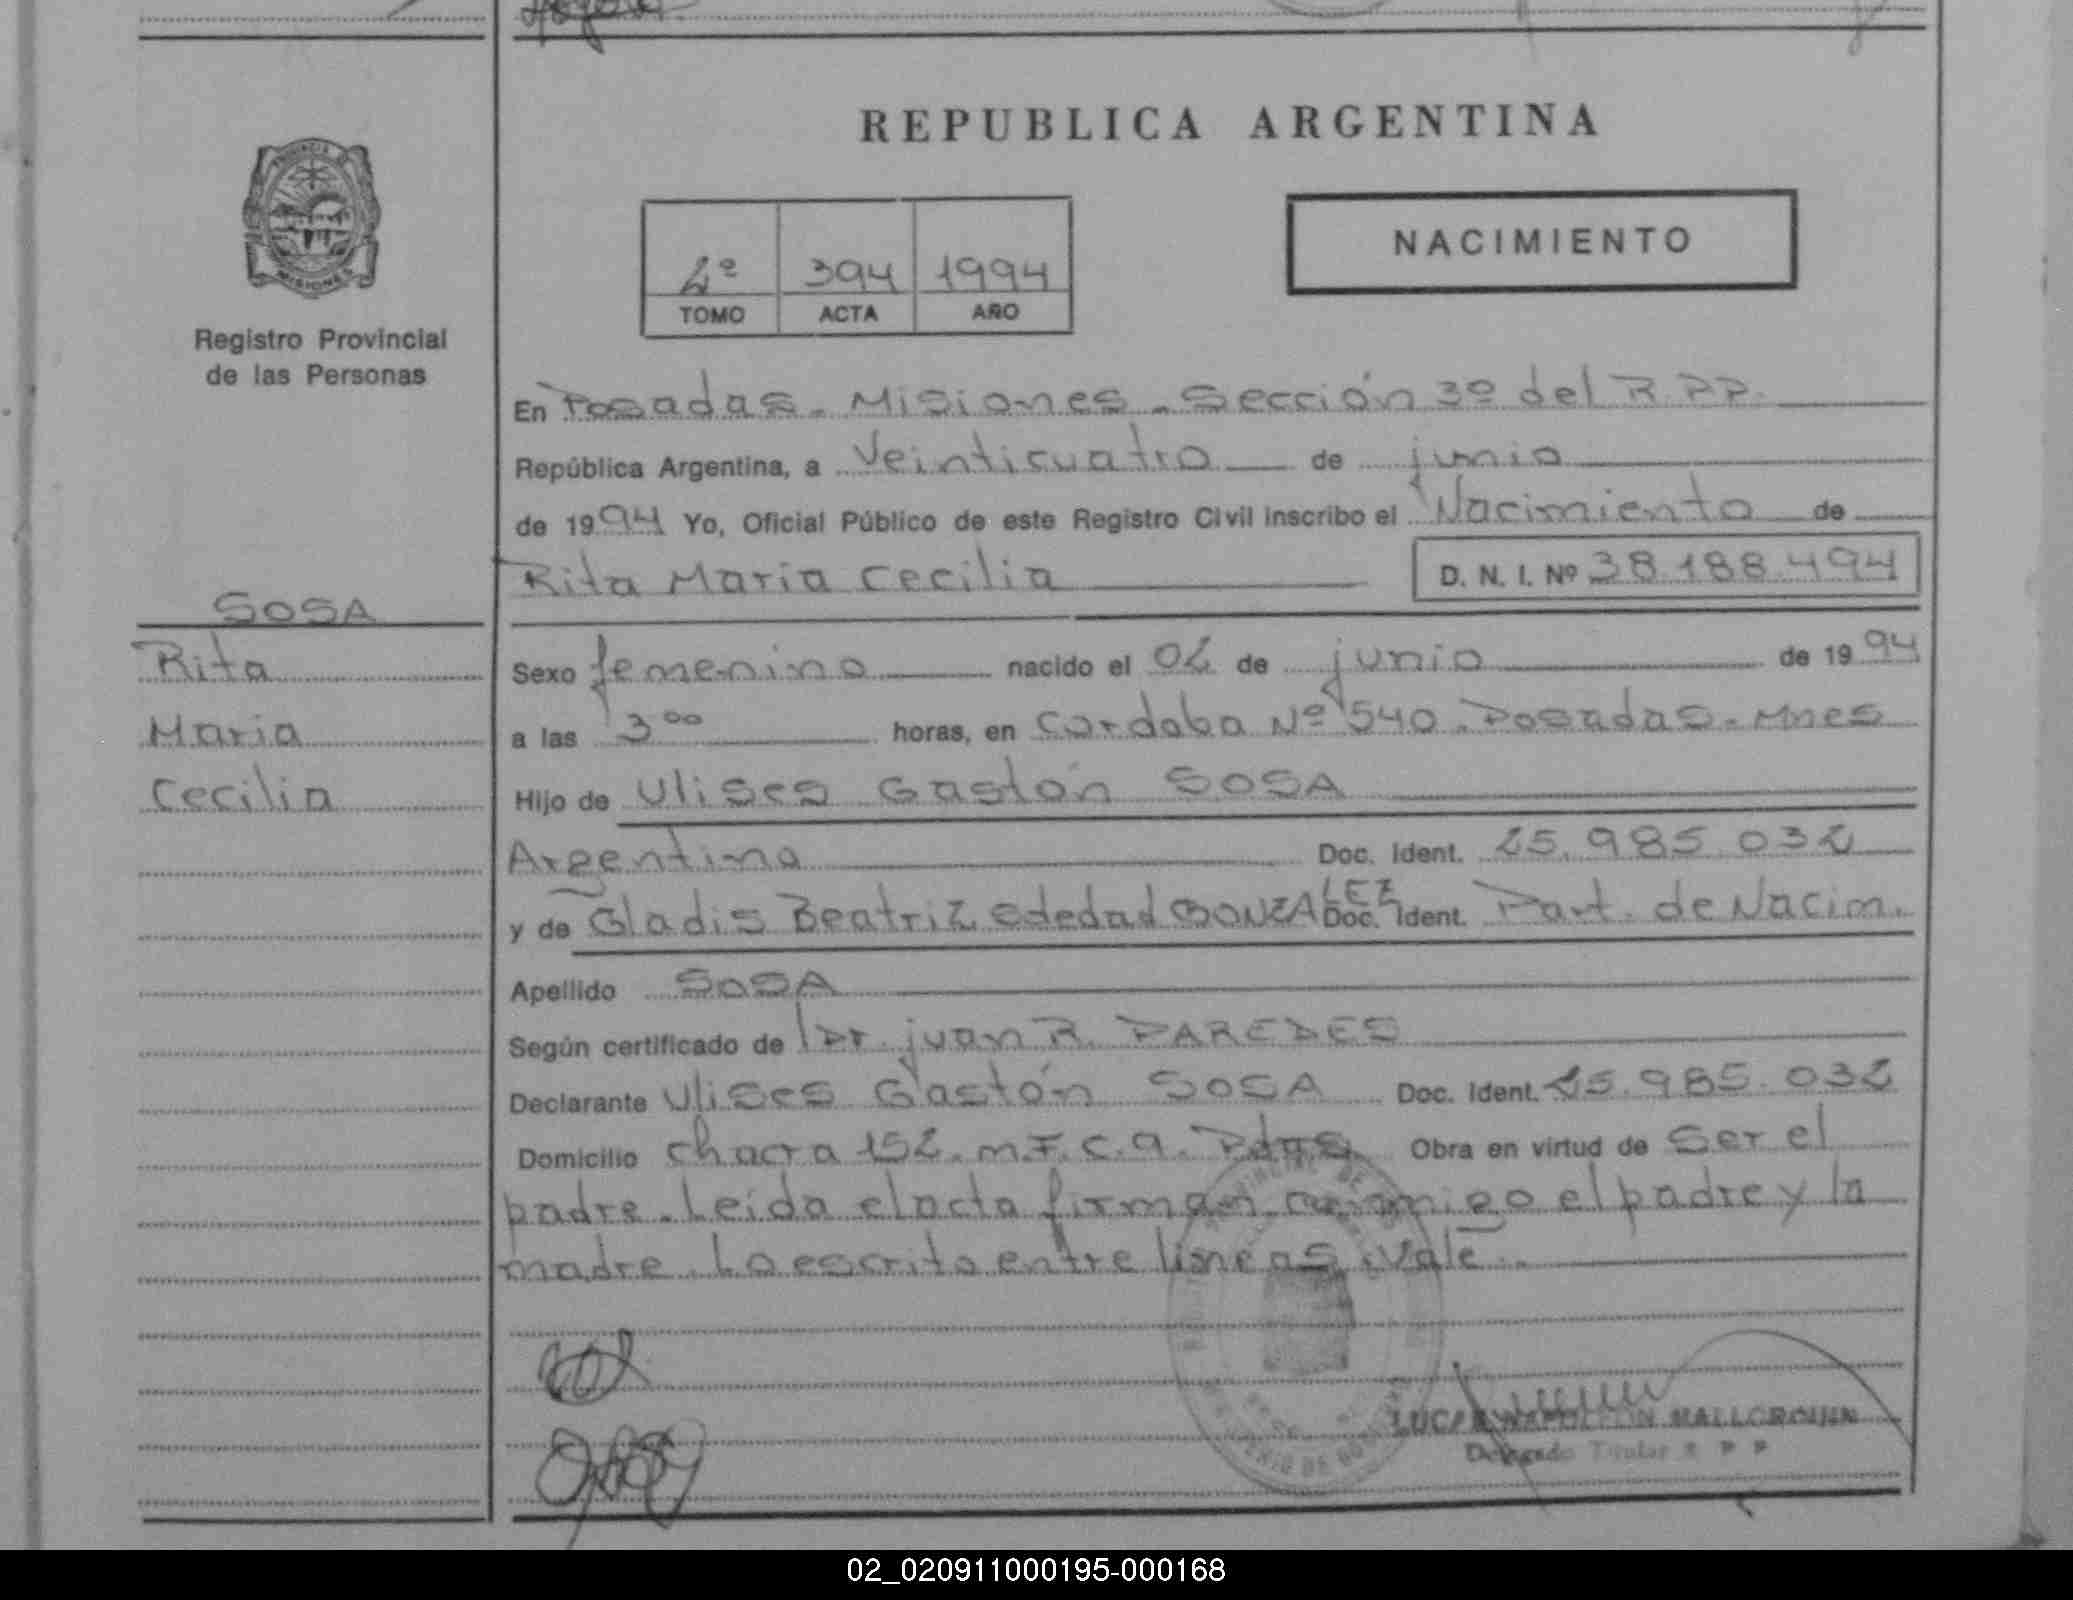 REPUBLICA ARGENTINA
PROVINCIA DE
MISIONES
Registro Provincial
de las Personas
NACIMIENTO
2º 394 1994
TOMO ACTA AÑO
En Posadas - Misiones - Sección 3º del R.P.P.
República Argentina, a Veinticuatro de junio
de 1994 Yo, Oficial Público de este Registro Civil inscribo el Nacimiento de
Rita Maria Cecilia D. N. I. Nº 38.188.494
SOSA
Rita
Maria
Cecilia
Sexo femenino nacido el 02 de junio de 1994
a las 3⁰⁰ horas, en Cordoba Nº 540 - Posadas - Mnes
Hijo de Ulises Gastón SOSA
Argentino Doc. Ident. 25.985.032
y de Gladis Beatriz Ededad GONZALEZ Doc. Ident. Part. de Nacim.
Apellido SOSA
Según certificado de Dr. juan R. PAREDES
Declarante Ulises Gastón SOSA Doc. Ident. 25.985.032
Domicilio chacra 152. m.F. c.9. Pdas Obra en virtud de ser el
padre. Leida el acta firman conmigo el padre y la
madre. Lo escrito entre lineas, Vale.
MALLORQUIN
Delegado Titular R P P
02_020911000195-000168